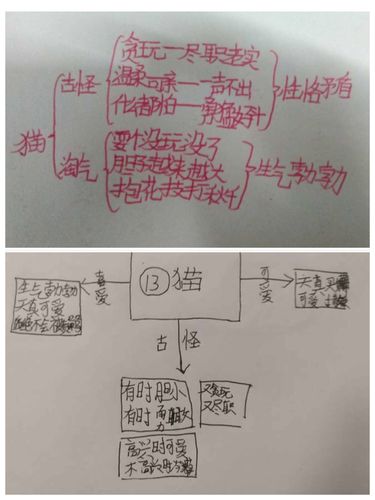 古怪
贪玩—尽职老实
温柔可亲—一声不出
什么都怕—勇猛好斗
性格矛盾
猫
淘气
耍个没玩没了
胆子越来越大
抱花枝打秋千
生气勃勃
⑬猫
喜爱
生气勃勃
天真可爱
可爱
天真
可爱
古怪
有时胆小
有时
又贪玩
又尽职
高兴时可爱
不高兴时